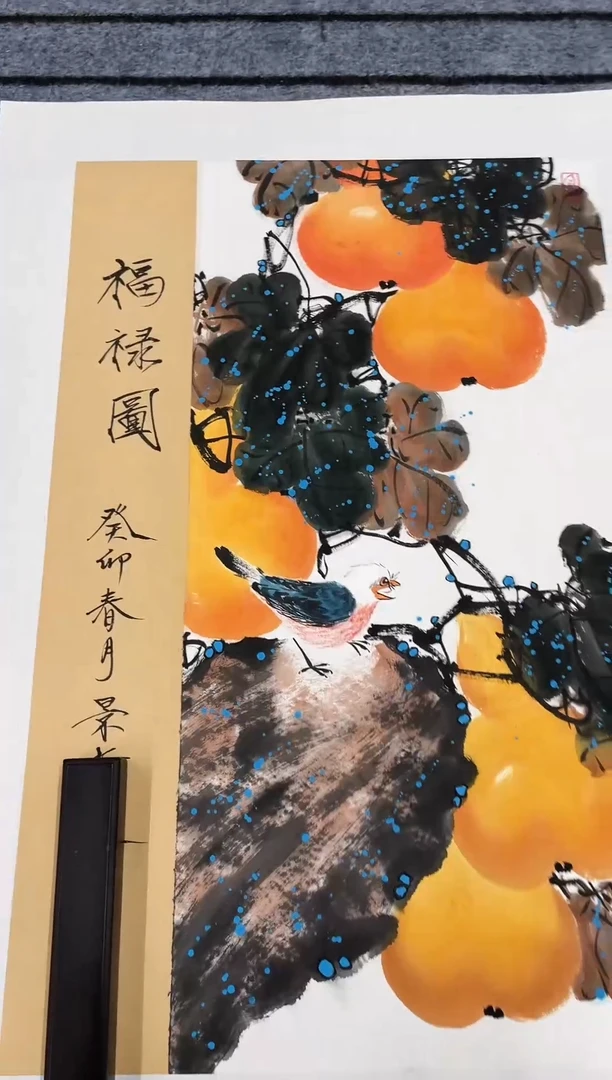 福禄圖
癸卯春月 景